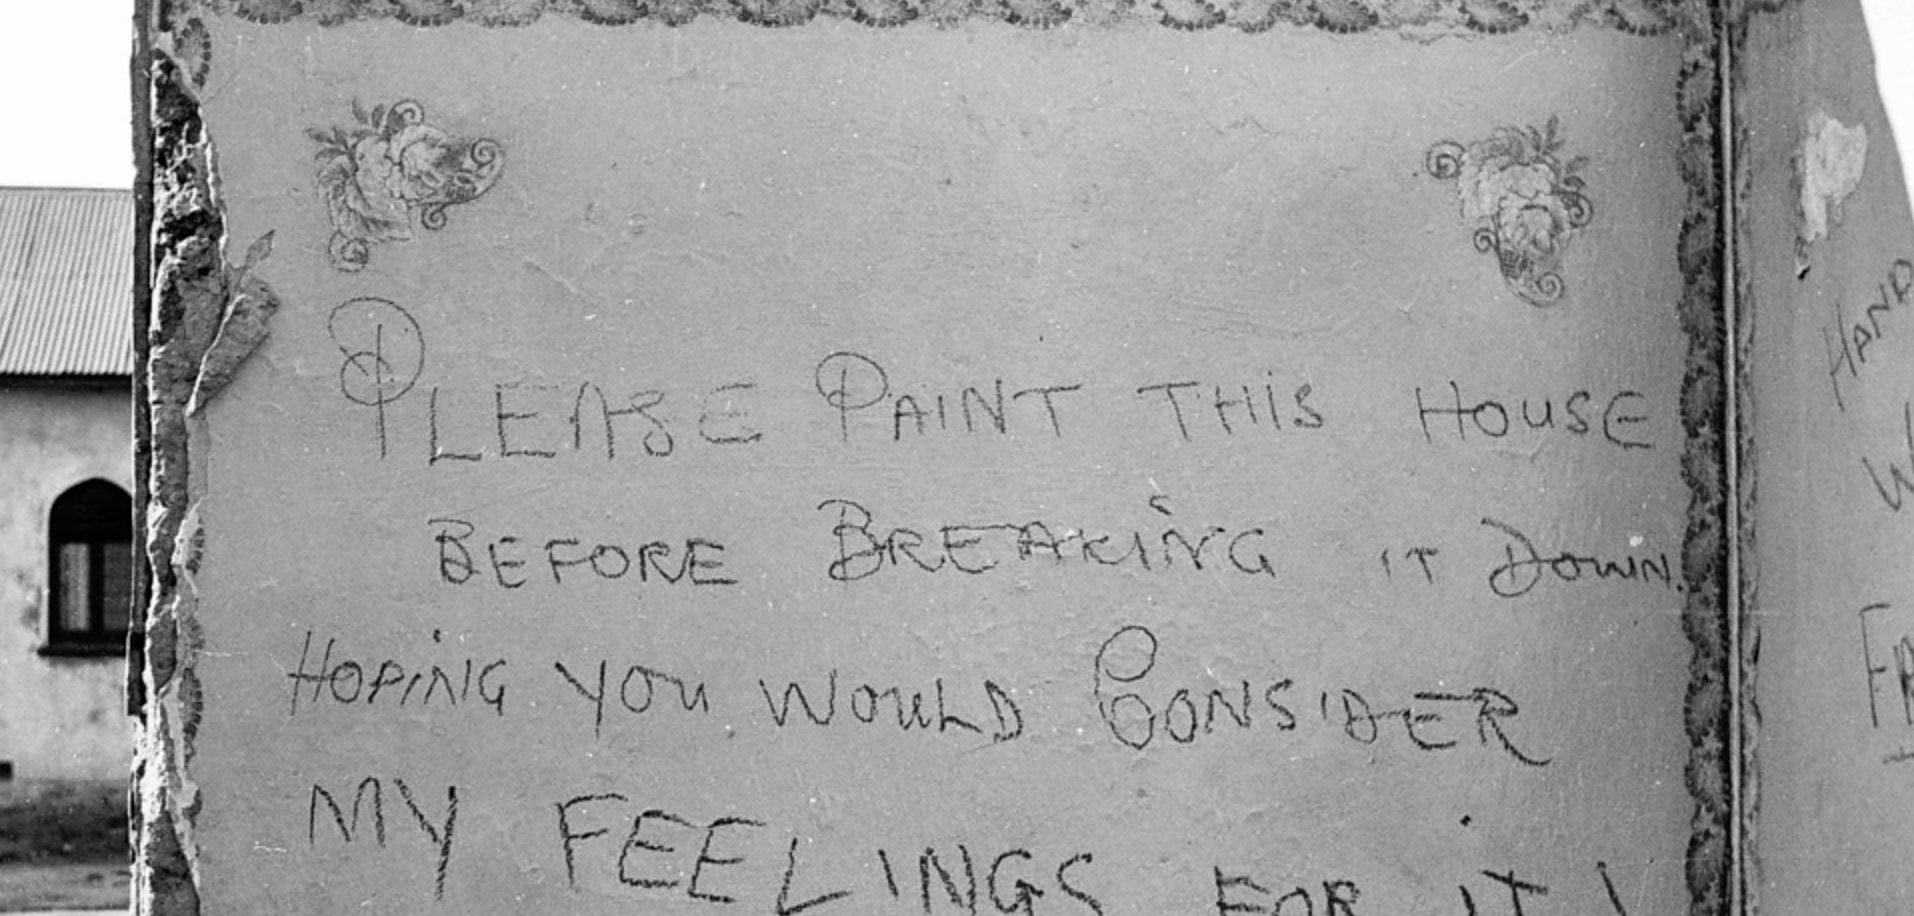 PLEASE PAINT THIS HOUSE
BEFORE BREAKING IT DOWN.
HOPING YOU WOULD CONSIDER
MY FEELINGS FOR IT!
HAND